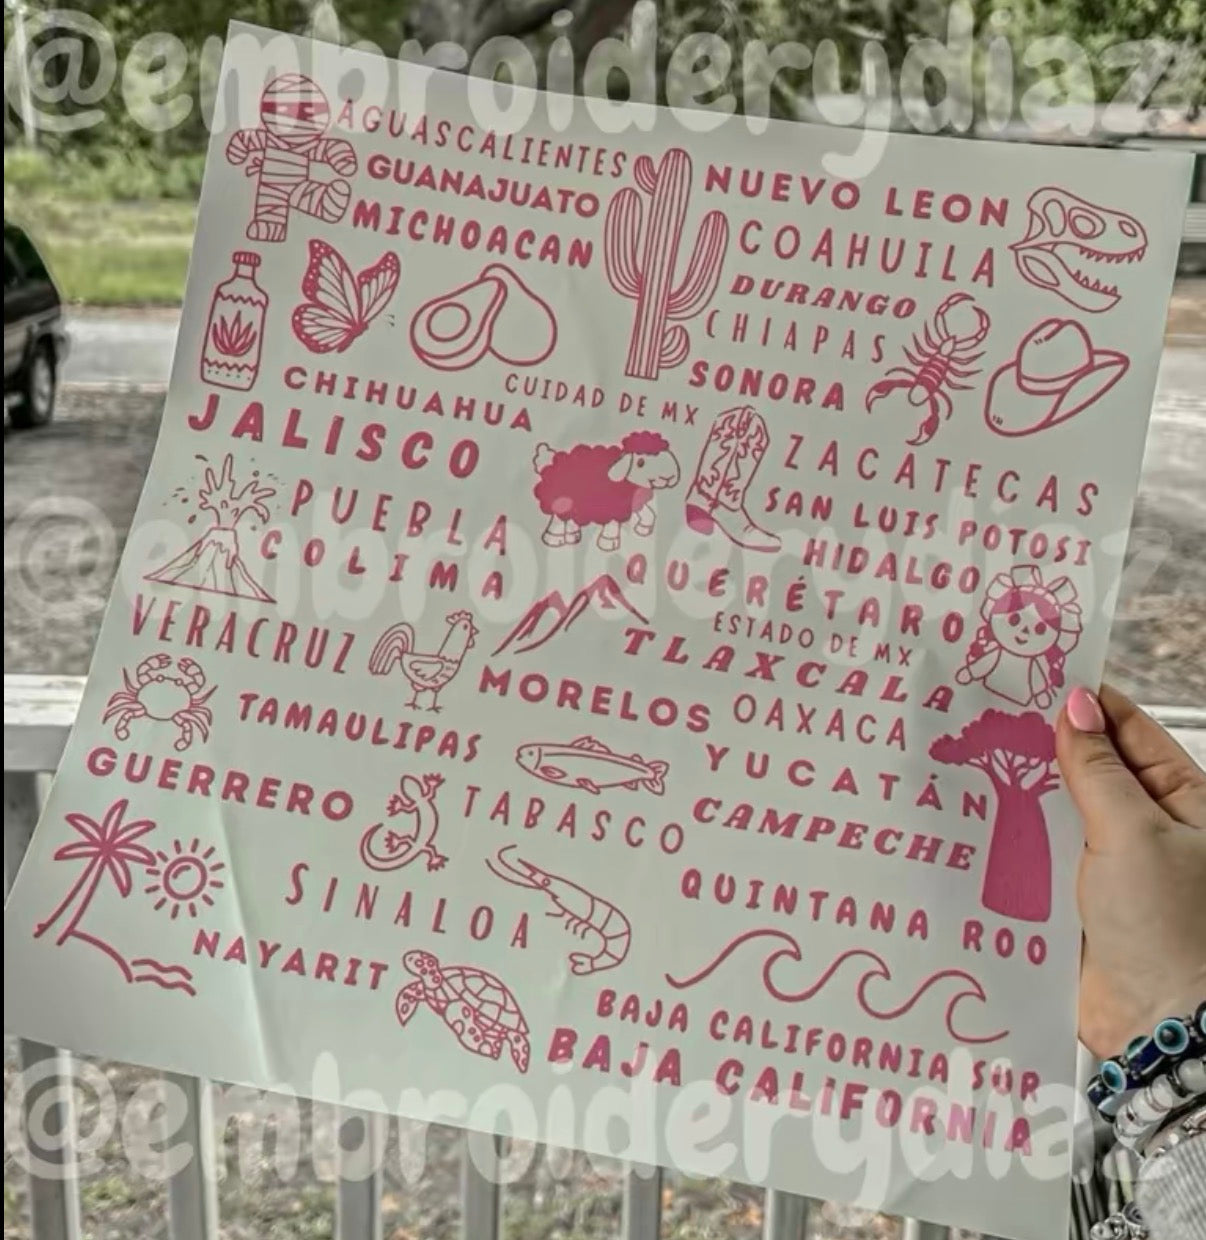 @embroiderydiaz
AGUASCALIENTES
GUANAJUATO
MICHOACAN
NUEVO LEON
COAHUILA
DURANGO
CHIAPAS
SONORA
CUIDAD DE MX
CHIHUAHUA
JALISCO
ZACATECAS
SAN LUIS POTOSI
HIDALGO
PUEBLA
COLIMA
@embroiderydiaz
QUERÉTARO
ESTADO DE MX
TLAXCALA
VERACRUZ
MORELOS
OAXACA
TAMAULIPAS
YUCATÁN
GUERRERO
TABASCO
CAMPECHE
SINALOA
QUINTANA ROO
NAYARIT
BAJA CALIFORNIA SUR
BAJA CALIFORNIA
@embroiderydiaz